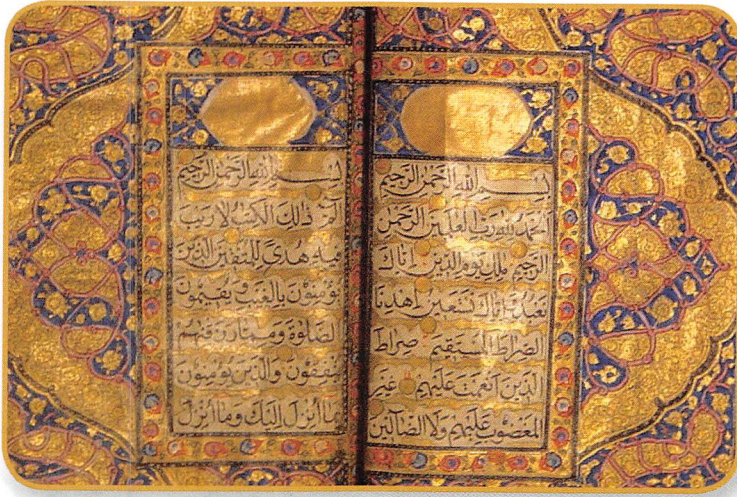 بسم الله الرحمن الرحيم
الحمد لله رب العلمين الرحمن
الرحيم ملك يوم الدين اياك
نعبد واياك نستعين اهدنا
الصراط المستقيم صراط
الذين انعمت عليهم غير
المغضوب عليهم ولا الضالين
بسم الله الرحمن الرحيم
الم ذلك الكتب لا ريب
فيه هدى للمتقين الذين
يؤمنون بالغيب ويقيمون
الصلوة ومما رزقنهم
ينفقون والذين يؤمنون
بما انزل اليك وما انزل